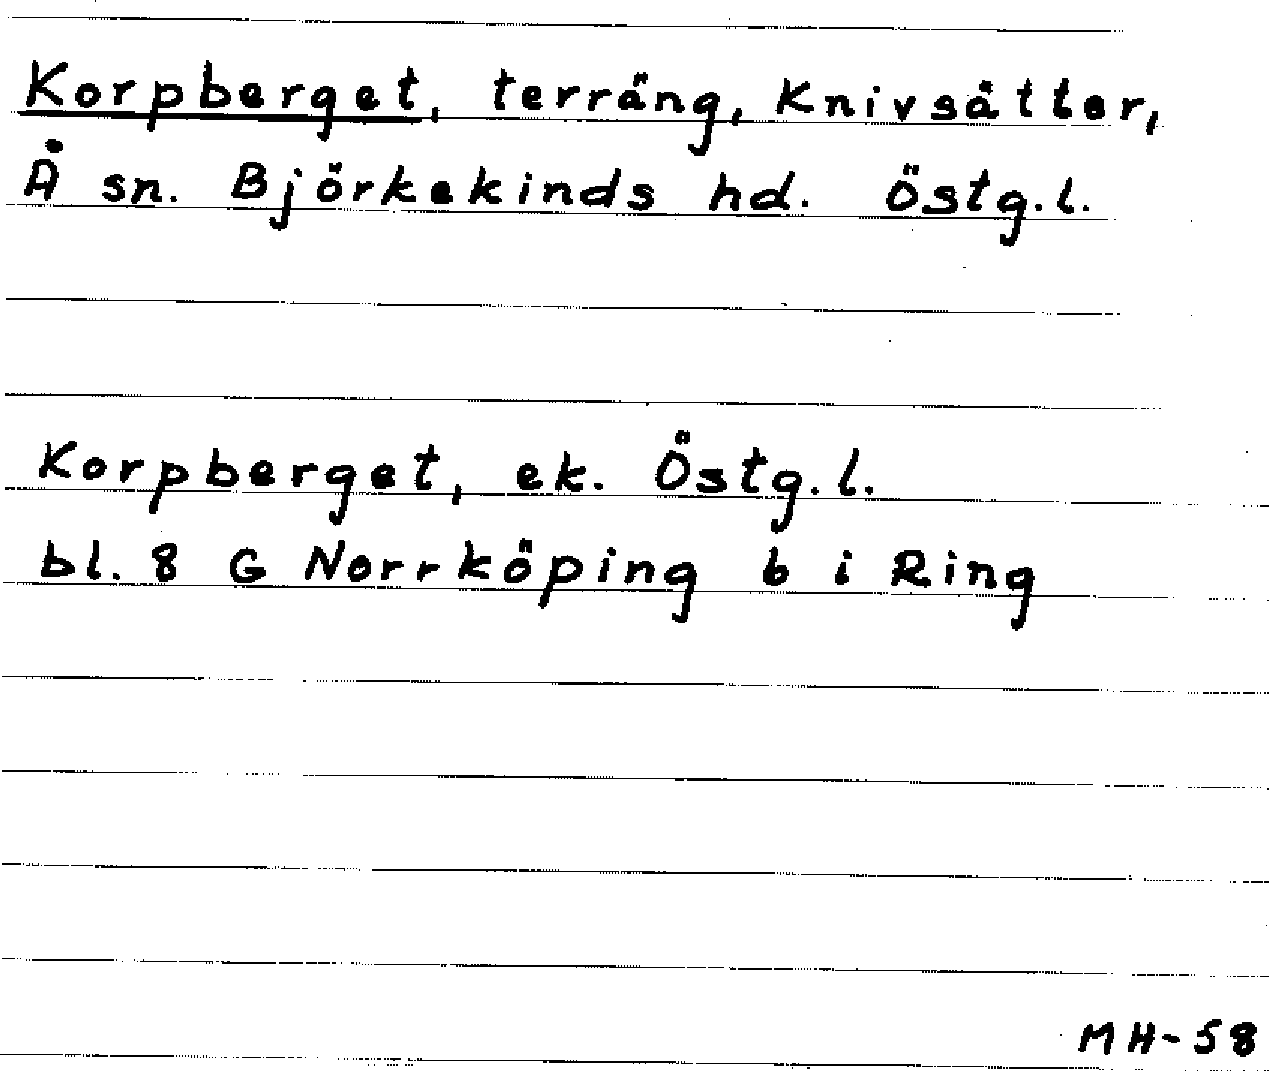 Korpberget, terräng, Knivsätter,
Å sn. Björkekinds hd. Östg.l.
Korpberget, ek. Östg.l.
bl. 8 G Norrköping b i Ring
MH-58